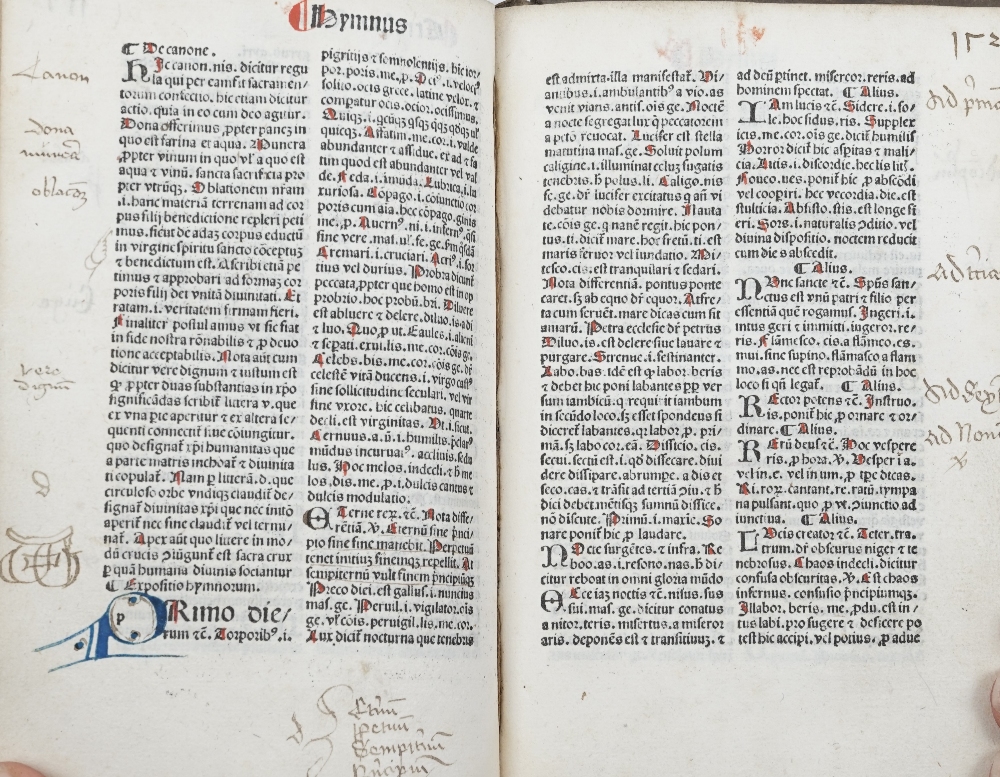 Hymnus
¶ De canone.
Hic canon.nis. dicitur regu
la qui per eam fit sacramen/
torum confectio. hic etiam dicitur
actio. quia in eo cum deo agitur.
Dona offerimus ꝓpter panez in
quo est farina et aqua. Munera
ꝓpter vinum in quo vl' a quo est
aqua z vinū. sancta sacrificia pro
pter vtrūqz. Oblationem nr̄am
.i. hanc materiā terrenam ad cor
pus filij benedictione repleri peti
mus. sicut de adaz corpus eductū
in virgine spiritu sancto cōceptuȝ
z benedictum est. Ascribi etiā pe
timus z approbari ad formaȝ cor
poris filij dei vnitā diuinitati. Et
ratam .i. veritatem firmam fieri.
Finaliter postulamus vt sic fiat
in fide nostra rōnabilis z ꝓ deuo
tione acceptabilis. Nota aūt cum
dicitur vere dignum z iustum est
ꝙ ꝓpter duas substantias in xp̄o
significādas scribit̄ littera v. que
ex vna pte aperitur z ex altera se/
quenti connectit̄ siue cōiungitur.
quo designat̄ xp̄i humanitas que
a parte matris inchoat̄ z diuinita
ti copulat̄. Nam ꝑ litterā.d. que
circuloso orbe vndiqȝ claudit̄ de/
signat̄ diuinitas xp̄i que nec initō
aperit̄ nec fine claudit̄ vel termi/
nat̄. Apex aūt quo littere in mo/
dū crucis cōiūgunt̄ est sacra crux
ꝑ quā humana diuinis sociantur
¶ Expositio hymnorum.
PRimo die/
rum zč. Torporibꝰ.i.
pigritijs z somnolentijs. hic tor/
por.poris.me.ꝓ.
solito.ocis grece. latine velox. z
compatur ocis.ocior.ocissimus.
quicqȝ. Affatim.me.cor.i. valde
abundanter z assidue. et ad z fa
tim quod est abundanter vel val
de. Feda .i. imūda. Lubrica.i.lu
xuriosa. Copago.i.coiunctio cor
poris cum aīa. hec cōpago.ginis
me.ꝓ. Auerni.ni.i.inferni.
sine vere. mal.
Cremari.i.cruciari.
tius vel durius. Probra dicunt̄
peccata, ꝓpter que homo est in op
probrio. hoc probrū.bri. Diluere
est abluere z delere. diluo.is a di
z luo. Quo.ꝓ vt. Exules.i.alieni
z sepati.exul.lis.me.cor.cōis ge.
Celebs.bis.me.cor.cōis ge. di
celestē vitā ducens .i. virgo castꝰ
sine sollicitudine seculari. vel vir
sine vxore. hic celibatus. quarte
decli. est virginitas. Vt.i.sicut.
Cernuus.a.ū.i.humilis.
mūdus incuruaꝰ. acclinis. seda
tus. Hoc melos.indecli. z h̄ me
los.dis.me.ꝓ.i.dulcis cantus z
dulcis modulatio.
ETerne rex. zč. Nota diffe/
rētiā. v. Eternū sine p̄nci/
pio sine fine manebit. Perpetuū
tenet initiuȝ fineqȝ repellit. At
sempiternū vult finem p̄ncipiūqȝ
Preco diei.est gallus.i.nuncius
mas. ge. Peruil.i.vigilator.ois
ge. vt cōis. peruigil.lis.me.cor.
Lux dicit̄ nocturna que tenebris
est admixta.illa manifestat̄. Vi/
antibus.i.ambulantibꝰ a vio.as
venit vians.antis.ois ge. Noctē
a nocte segregat lux qȝ peccatorem
a pctō reuocat. Lucifer est stella
matutina mas.ge. Soluit polum
caligine.i.illuminat celuȝ fugatis
tenebris. h̄ polus.li. Caligo.nis
fe.ge. dr̄ lucifer excitatus qȝ añ vi
debatur nobis dormire. Nauta
te.cōis ge. qȝ nanē regit. hic pon/
tus.ti.dicit̄ mare. hoc fretū.ti.est
maris feruor vel iundatio. Mi/
tesco.cis.est tranquillari z sedari.
Nota differentiā. pontus ponte
caret. sȝ ab equo dr̄ equor. At fre/
ta cum feruēt. mare dicas cum sit
amarū. Petra ecclesie dr̄ petrus
Diluo.is.est delere siue lauare z
purgare. Strenue.i.festinanter.
Labo.bas.idē est ꝙ labor.beris
z debet hic poni labantes ꝓp ver
sum iambicū. qȝ requirit iambum
in secūdo loco. sȝ esset spondeus si
diceret̄ labantes. qȝ labor.ꝑ. pri/
mā. sȝ labo cor. eā. Dissicio.cis.
secui.sectū est.i.qd̄ dissecare. diui
dere dissipare. abrumpe. a dis et
seco.cas. z trāsit ad tertiā ɔiu. z h̄
dici debet. mētisqȝ sumnū dissice.
nō disicute. Primū.i.maxie. So
nare ponit̄ hic ꝓ laudare.
NOcte surgētes z infra. Re
boo.as.i.resono.nas. h̄ di/
citur reboat in omni gloria mūdo
ECce iaȝ noctis zč. nisus.sus
sui.mas.ge.dicitur conatus
a nitor.teris. misertus. a miseror
aris. deponēs est z transitiuuȝ. z
ad deū ꝑtinet. misereor.reris. ad
hominem spectat. ¶ Alius.
IAm lucis zč. Sidere.i.so/
le.hoc sidus.ris. Supplex
icis.me.cor.ois ge. dicit̄ humilis
Horror dicit̄ hic aspitas z mali/
cia. Litis.i.discordie.hec lis litꝭ.
Foueo.ues.ponit̄ hic ꝓ abscōdi
vel cooperi. hec vecordia.die.est
stulticia. Absisto.stis.est longe si
eri. Sors.i.naturalis ɔditio. vel
diuina dispositio. noctem reducit
cum dies abscedit.
¶ Alius.
NUnc sancte zč. Sp̄us san/
ctus est vnū patri z filio per
essentiā quē rogamus. Ingeri.i.
intus geri z immitti. ingeror.re/
ris. Flāmesco.cis.a flāmeo.es.
mui. sine supino. flāmasco a flam
mo.as. nec est reprobādū in hoc
loco si qn̄ legat̄. ¶ Alius.
REctor potens zč. Instruo.
is. ponit̄ hic ꝓ ornare z or/
dinare. ¶ Alius.
REȳ deus zč. Hoc vespere
ris. ꝓ hora. v. Vesper i a.
vel in e. vel in um. ꝓ tpe dicas.
na pulsant. quo. ꝓ vt. ɔiunctio ad
iunctiua. ¶ Alius.
LUcis creator zč. Teter.tra.
trum. dr̄ obscurus niger z te
nebrosus. Chaos indecli. dicitur
confusa obscuritas. v. Est chaos
infernus. confusio p̄ncipiumqȝ.
Illabor.beris.me. ꝓdu. est in/
tus labi. pro fugere z desicere po
test hic accipi. vel potius. ꝓ adue
Canon
dona
munera
vere
dignum
d
Eternū
ꝑpetuū
Sempiternū
Principiū
Ad p̄mā
Ad tercia
Ad Sextā
Ad Nonā